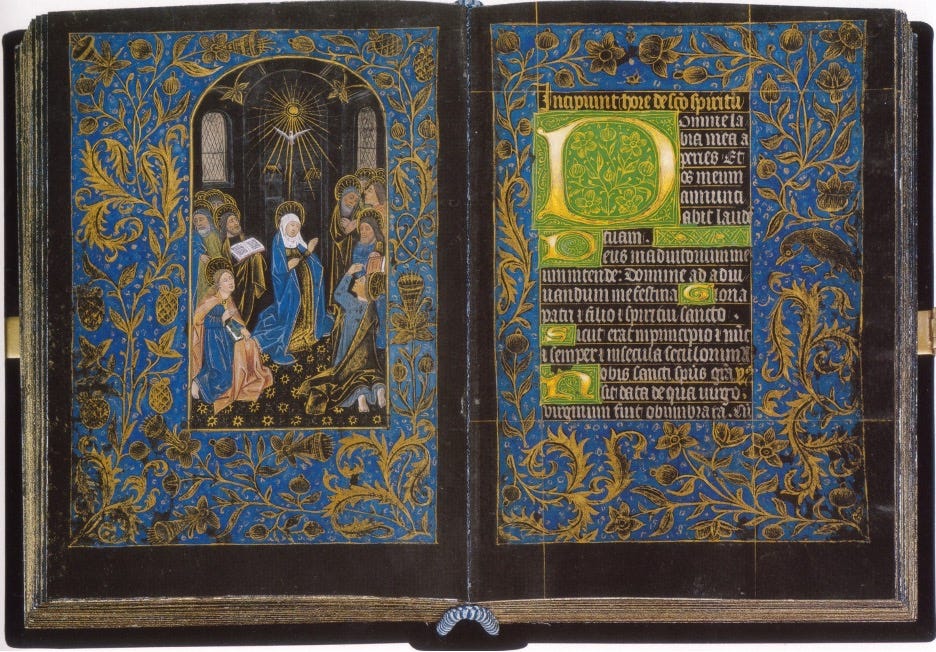 Incipiunt hore de sco spiritu
Domine la
bia mea a
peries Et
os meum
annunti
abit laude
tuam.
Deus in adiutorium me
um intende: Domine ad adiu
uandum me festina Gloria
patri ⁊ filio ⁊ spiritui sancto.
Sicut erat in principio ⁊ nūc
⁊ semper ⁊ in secula seculorum a
Nobis sancti spūs gra
sit data de qua uirgo.
virginum fuit obumbrata. Cū